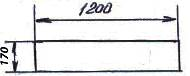 1200
170